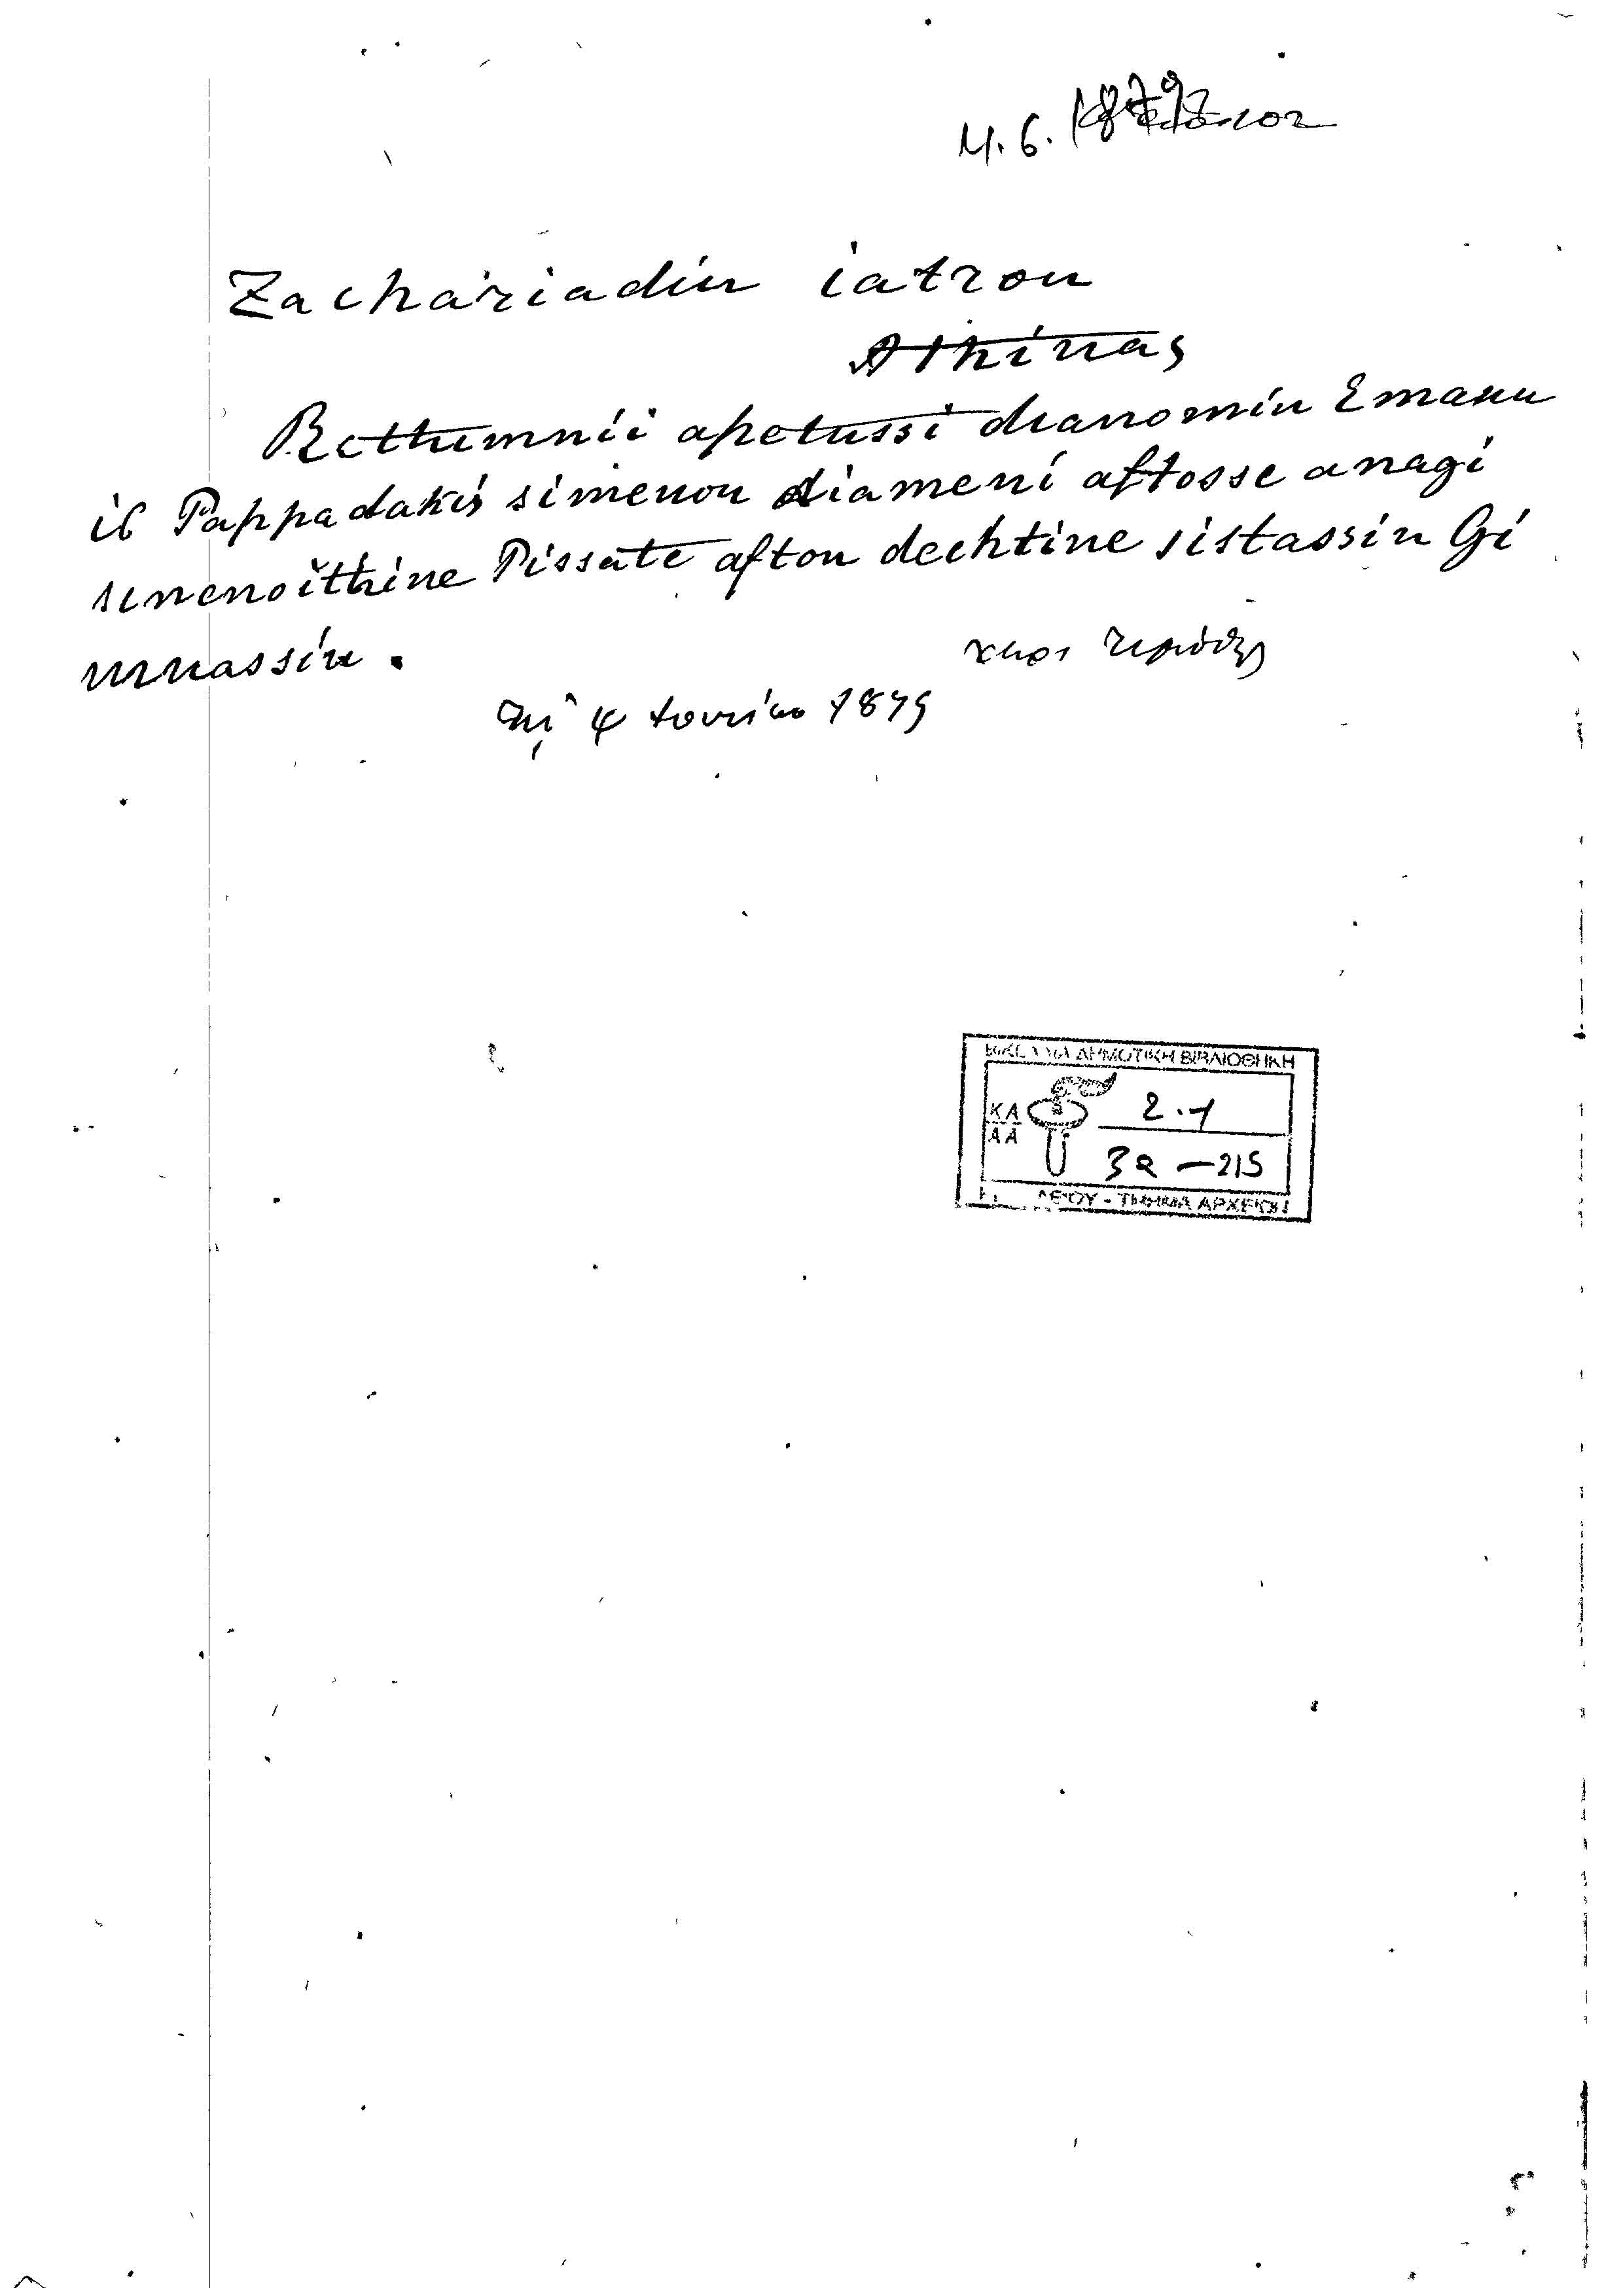 4.6.1879
Zachariadin iatron
Athinas
Rethumnii apetussi dianomin Emanu
il Pappadakis simeron diameni aftosse anagi
sunenoithine Pissate afton dechtine sistassin Gi
mnassin.
4 Ιουνίου 1879
ΒΙΚΕΛΑΙΑ ΔΗΜΟΤΙΚΗ ΒΙΒΛΙΟΘΗΚΗ
ΚΑ 2.1
ΑΑ 3α - 215
ΗΡΑΚΛΕΙΟΥ - ΤΜΗΜΑ ΑΡΧΕΙΩΝ